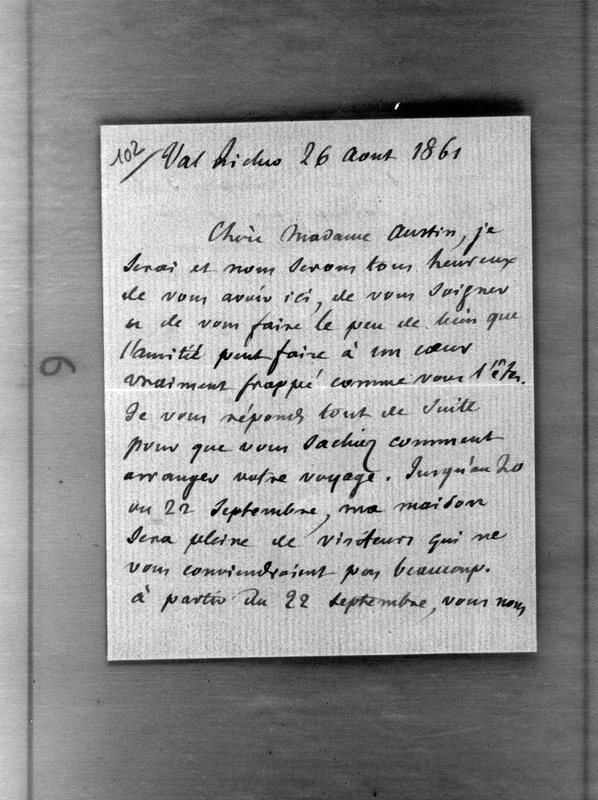 102/ Val Richer 26 Aout 1861
Chère Madame Austin, je
serai et nous serons tous heureux
de vous avoir ici, de vous soigner
et de vous faire le peu de bien que
l'amitié peut faire à un cœur
vraiment frappé comme vous l'êtes.
Je vous réponds tout de suite
pour que vous sachiez comment
arranger votre voyage. Jusqu'au 20
ou 22 septembre, ma maison
sera pleine de visiteurs qui ne
vous conviendraient pas beaucoup.
à partir du 22 septembre, vous nous
6